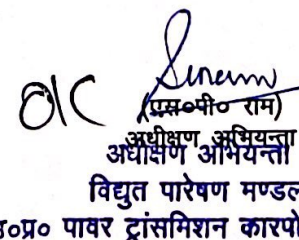 O/C
(एस०पी० राम)
अधीक्षण अभियन्ता
अधीक्षण अभियन्ता
विद्युत पारेषण मण्डल
उ०प्र० पावर ट्रांसमिशन कारपो